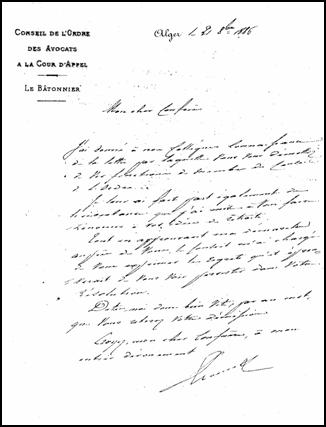 CONSEIL DE L'ORDRE
DES AVOCATS
A LA COUR D'APPEL
LE BÂTONNIER
Alger, le 21 Xbre 1886
Mon cher Confrère
J'ai donné à nos Collègues connaissance
de la lettre par laquelle vous vous démettez
de vos fonctions de membre du Conseil
de l'Ordre.
Je leur ai fait part également de
que j'ai à faire
Tout en approuvant ma démarche
auprès de vous, le Conseil m'a chargé
de vous exprimer les regrets qu'il
de vous voir persister dans votre
résolution.
Dites-moi donc bien vite, par un mot,
que vous retirez votre démission
Croyez, mon cher Confrère, à mon
entier dévouement